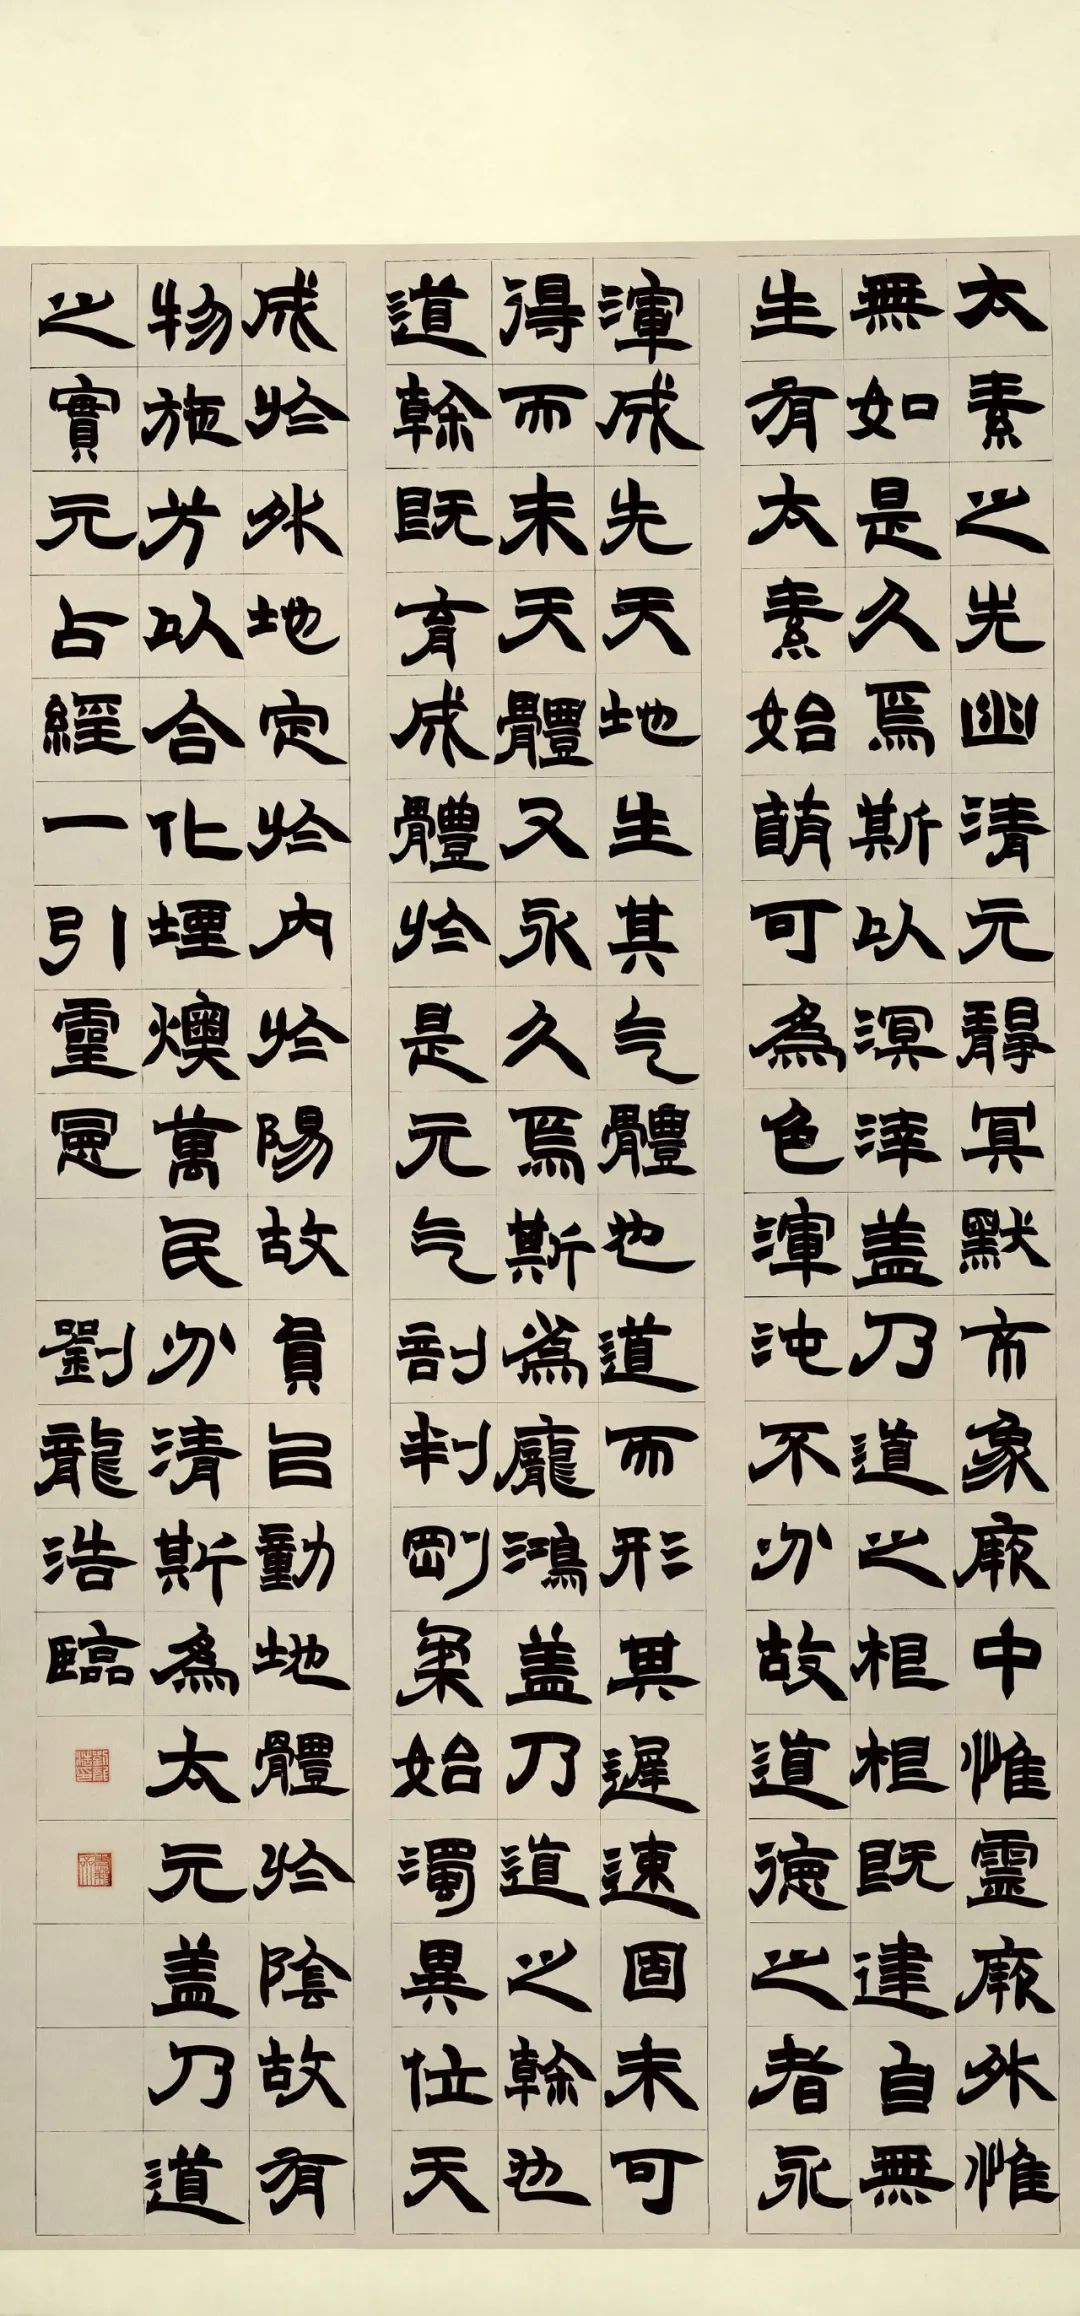 太素之先幽清元靜冥默帀象厥中惟靈厥外惟
無如是久焉斯以溟涬盖乃道之根根既建自無
生有太素始萌可為色渾沌不分故道德之者永
渾成先天地生其气體也道而形其遲速固未可
得而未天體又永久焉斯為龐鴻盖乃道之幹也
道幹既育成體於是元气剖判剛柔始濁異位天
成於外地定於內於陽故員㠯動地體於陰故有
物施芳以合化堙燠萬民分清斯為太元盖乃道
之實元占經一引靈
劉龍浩臨